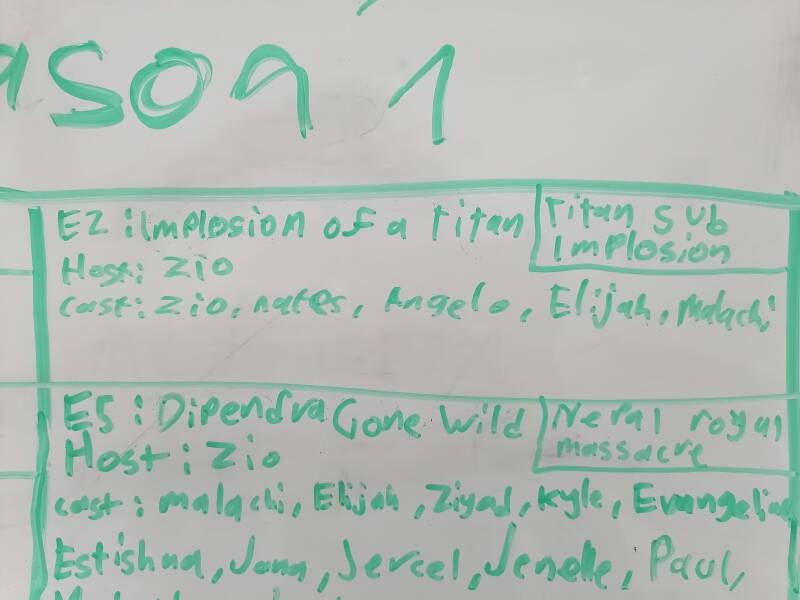 ason 1
E2 : Implosion of a Titan
Titan sub
Implosion
Host: Zio
Cast: Zio, nates, Angelo, Elijah, Malachi
E5 : Dipendra Gone Wild
Nepal royal
massacre
Host : Zio
cast : malachi, Elijah, Ziyad, Kyle, Evangelina
Estishna, Jana, Jercel, Jenelle, Paul,